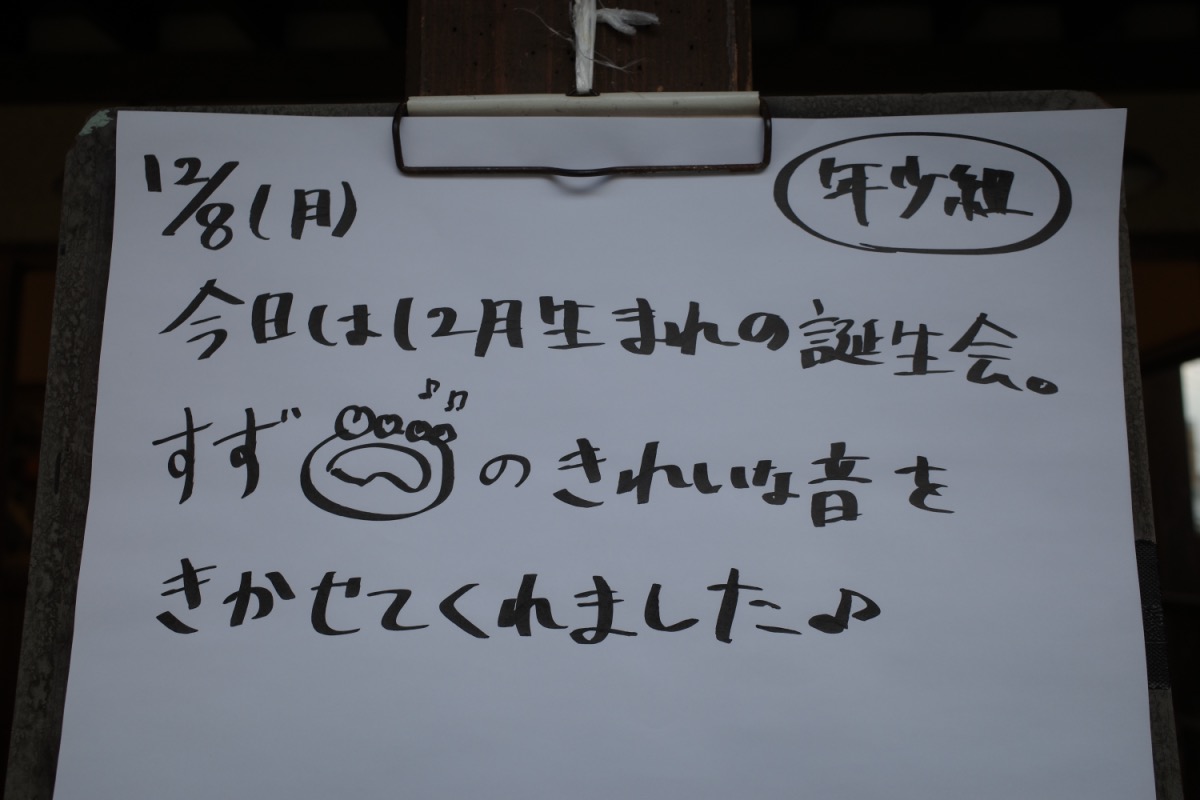 12/8(月)
年少組
今日は12月生まれの誕生会。
すず♪♫のきれいな音を
きかせてくれました♪